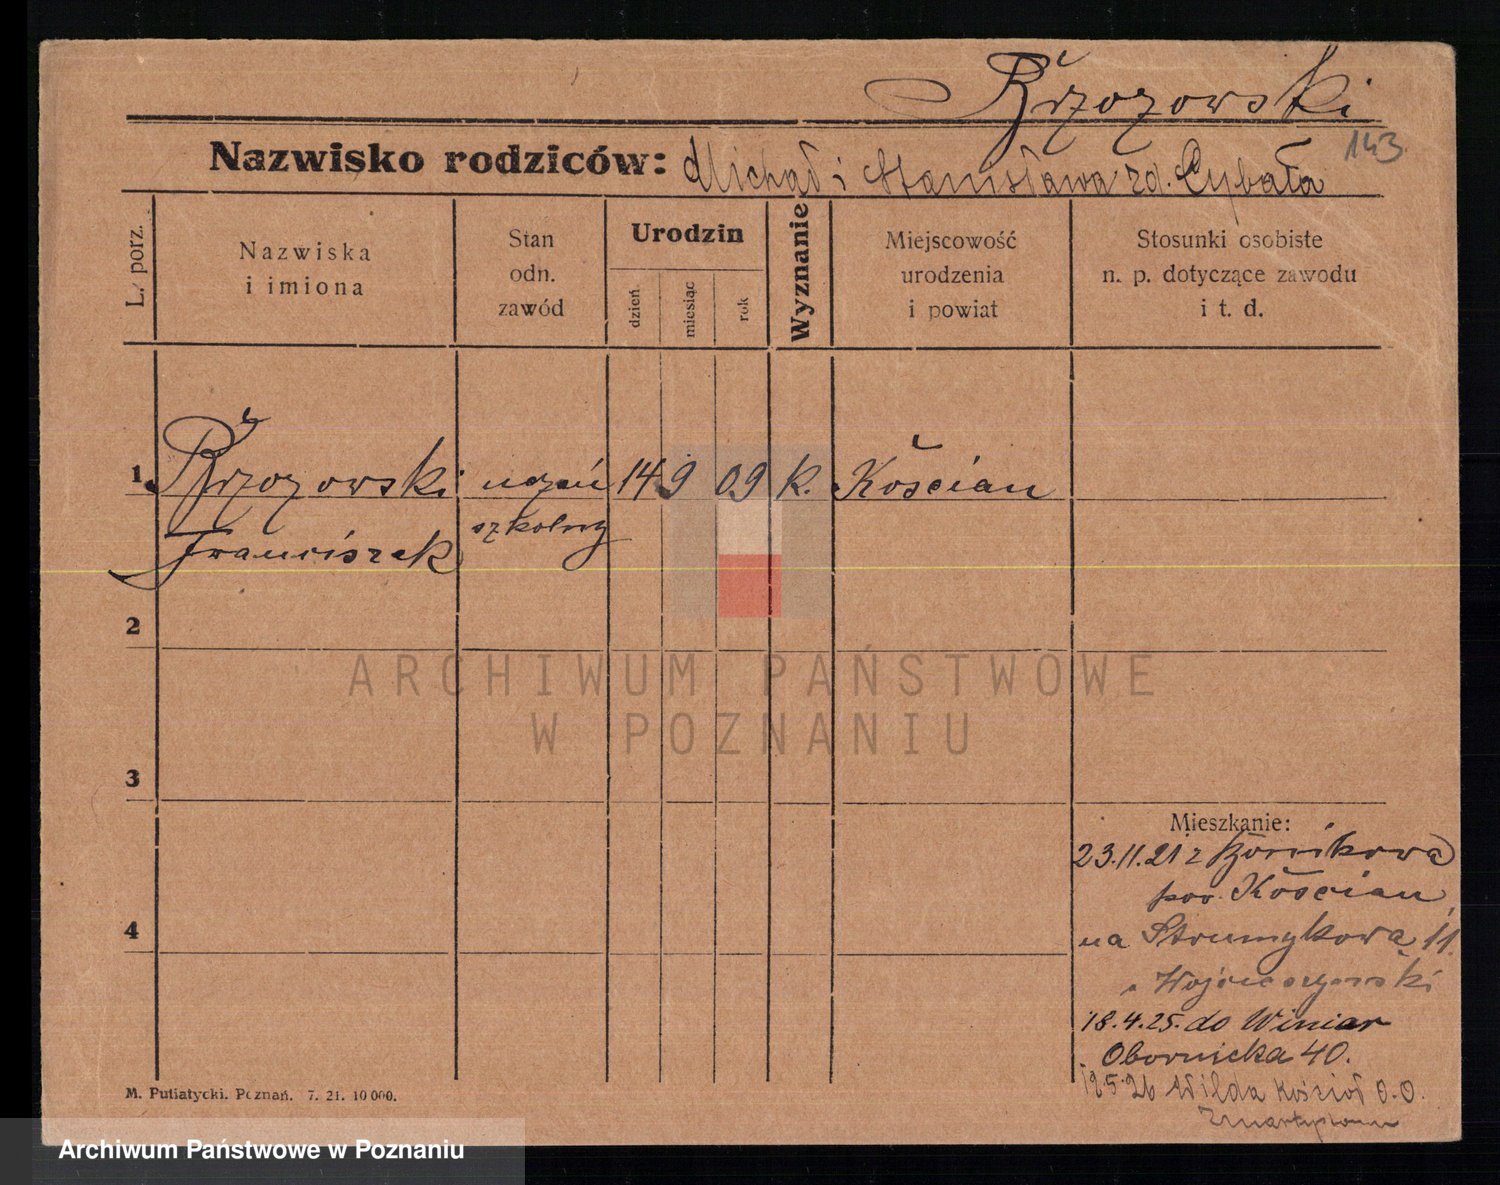 Brzozowski
143
Nazwisko rodziców: Michał i Stanisława rd. Cybała
L. porz.
Nazwiska
i imiona
Stan
odn.
zawód
Urodzin
dzień
miesiąc
rok
Wyznanie
Miejscowość
urodzenia
i powiat
Stosunki osobiste
n. p. dotyczące zawodu
i t. d.
1 Brzozowski uczeń 14 9 09 k. Kościan
Franciszek szkolny
2
ARCHIWUM PAŃSTWOWE
W POZNANIU
3
Mieszkanie:
23.11.21 z
pow. Kościan,
4
na Strumykową 11.
18.4.25. do Winiar
Obornicka 40.
12.5.26 Wilda Kościół O.O.
M. Putiatycki. Poznań. 7. 21. 10 000.
Archiwum Państwowe w Poznaniu